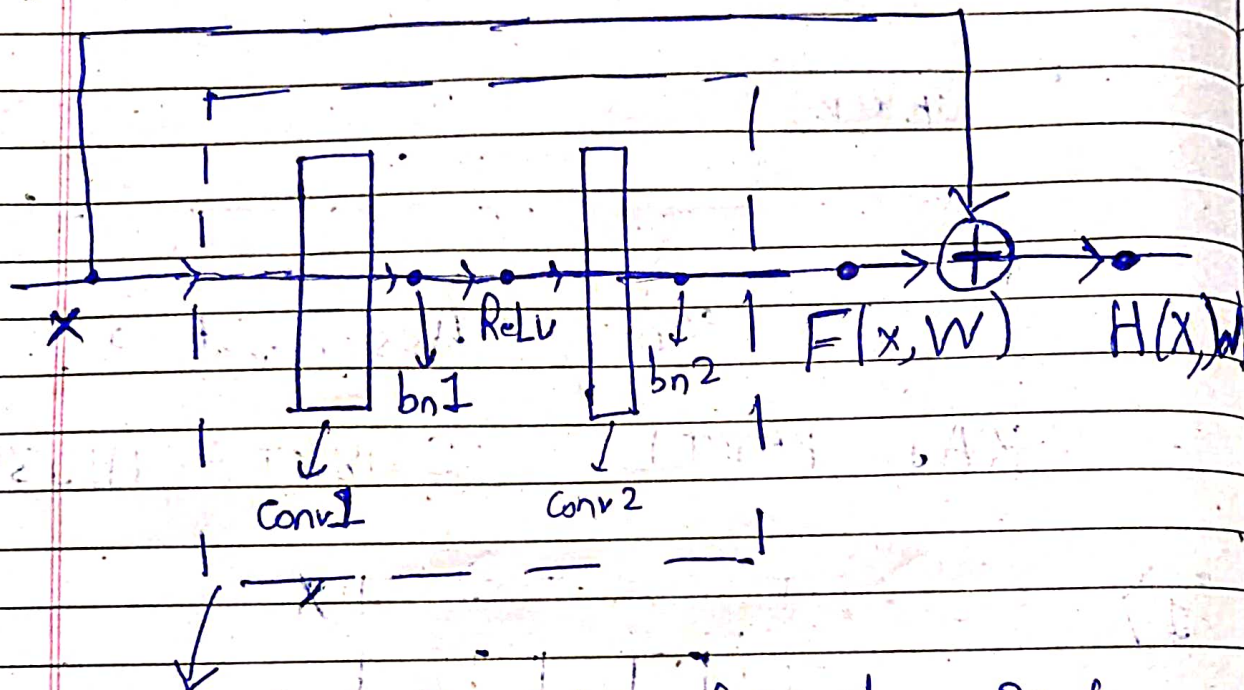 x
bn1
ReLU
bn2
F(x, W)
H(X, W
Conv1
Conv2